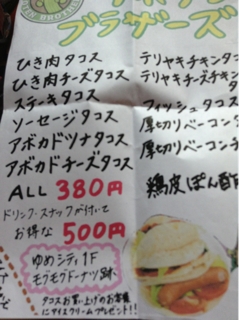 ブラザーズ
ひき肉タコス
ひき肉チーズタコス
ステーキタコス
ソーセージタコス
アボカドツナタコス
アボカドチーズタコス
テリヤキチキンタコ
テリヤキチーズチキンタ
フィッシュタコス
厚切りベーコンタ
厚切りベーコンチ
鶏皮ぽん酢
ALL 380円
ドリンク・スナックが付いて
お得な 500円
ゆめシティ1F
モグモグドーナツ味
タコスお買い上げのお客様
にアイスクリームプレゼント!!